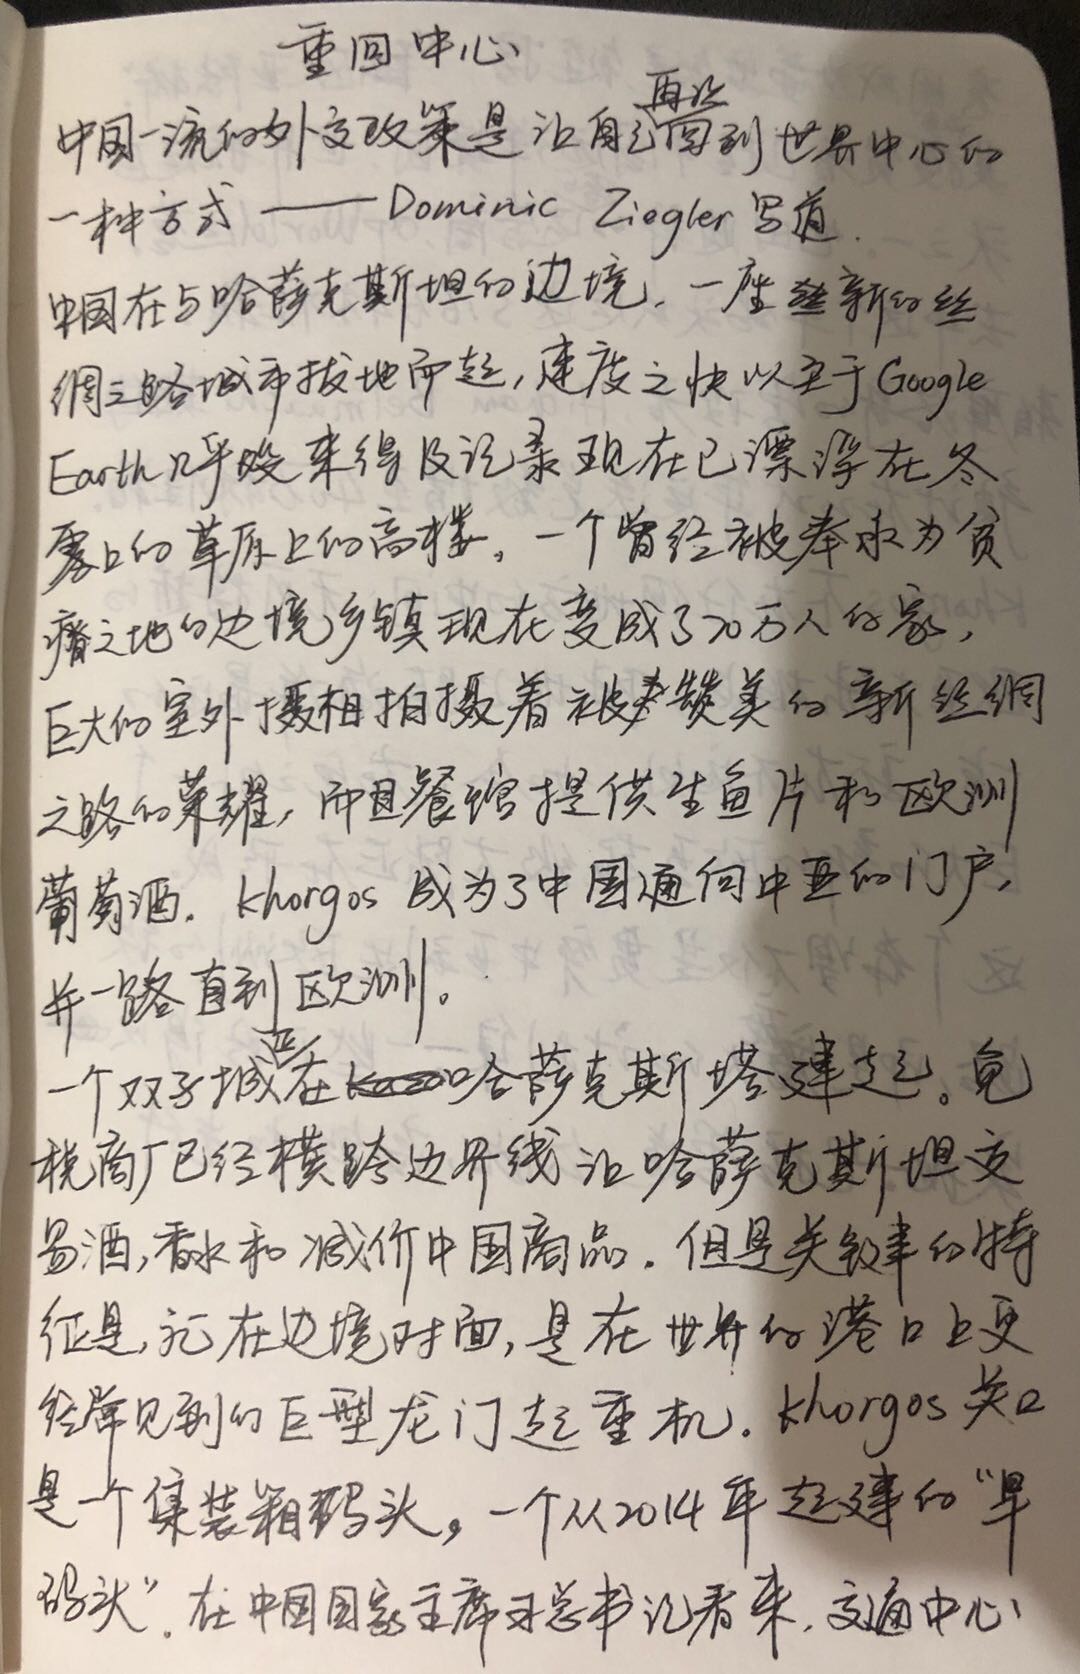 重回中心
中国一流的外交政策是让自己再次回到世界中心的
一种方式 —— Dominic Ziegler 写道.
中国在与哈萨克斯坦的边境, 一座新的丝
绸之路城市拔地而起, 速度之快以至于 Google
Earth几乎没来得及记录现在已漂浮在冬
雾上的草原上的高楼. 一个曾经被奉承为贫
瘠之地的边境乡镇现在变成了20万人的家,
巨大的室外摄相拍摄着被赞美的新丝绸
之路的荣耀, 而且餐馆提供生鱼片和欧洲
葡萄酒. Khorgos 成为了中国通向中亚的门户,
并一路直到欧洲。
一个双子城正在哈萨克斯塔建起。免
税商厂已经横跨边界线让哈萨克斯坦交
易酒, 香水和减价中国商品. 但是关键的特
征是, 就在边境对面, 是在世界的港口上更
经常见到的巨型龙门起重机. Khorgos 关口
是一个集装箱码头, 一个从2014年起建的“旱
码头”. 在中国国家主席习总书记看来, 交通中心